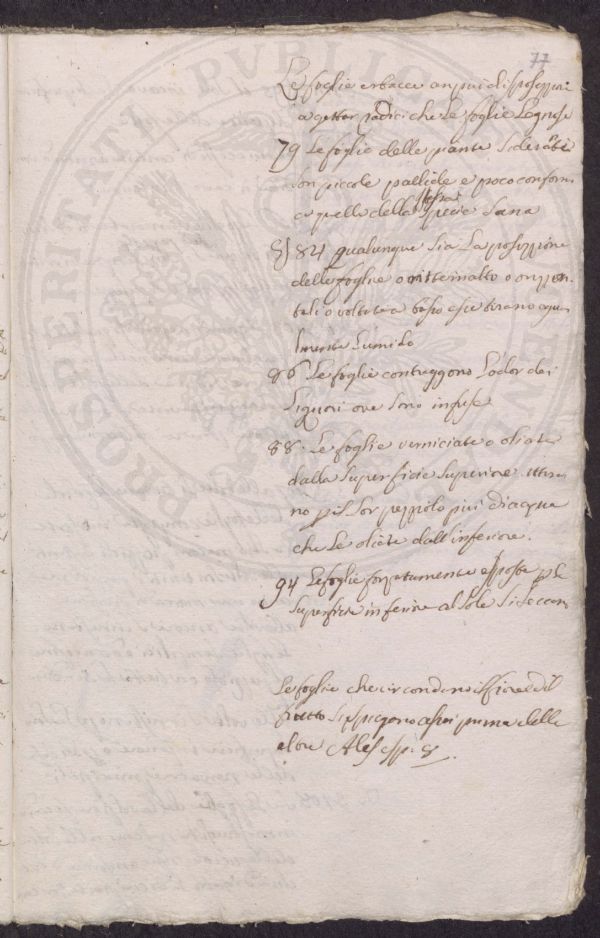 77
Le foglie erbacee an piu disposizzione
a getter radici che le foglie Legnose
79 Le foglie delle piante siderate
son piccole pallide e poco conformi
a quelle della stessa specie sana
81 84 qualunque sia La posizzione
delle foglie o in alto o orizzon
tali o voltate a basso esse tirano egua
lmente L'umido
86 Le foglie contraggono L'odor dei
Liquori ove sono infuse
88. Le foglie verniciate o oliate
dalla superficie superiore attira
no pil Lor pezziolo piu d'acqua
che Le oliate dall'inferiore.
94 Le foglie forzatamente esposte p le
superficie inferiore al sole si seccano
Le foglie che circondono il fiore ed il
frutto si spiegono assai prima delle
altre Ales esp. 8
PROSPERITATI PUBLICAE